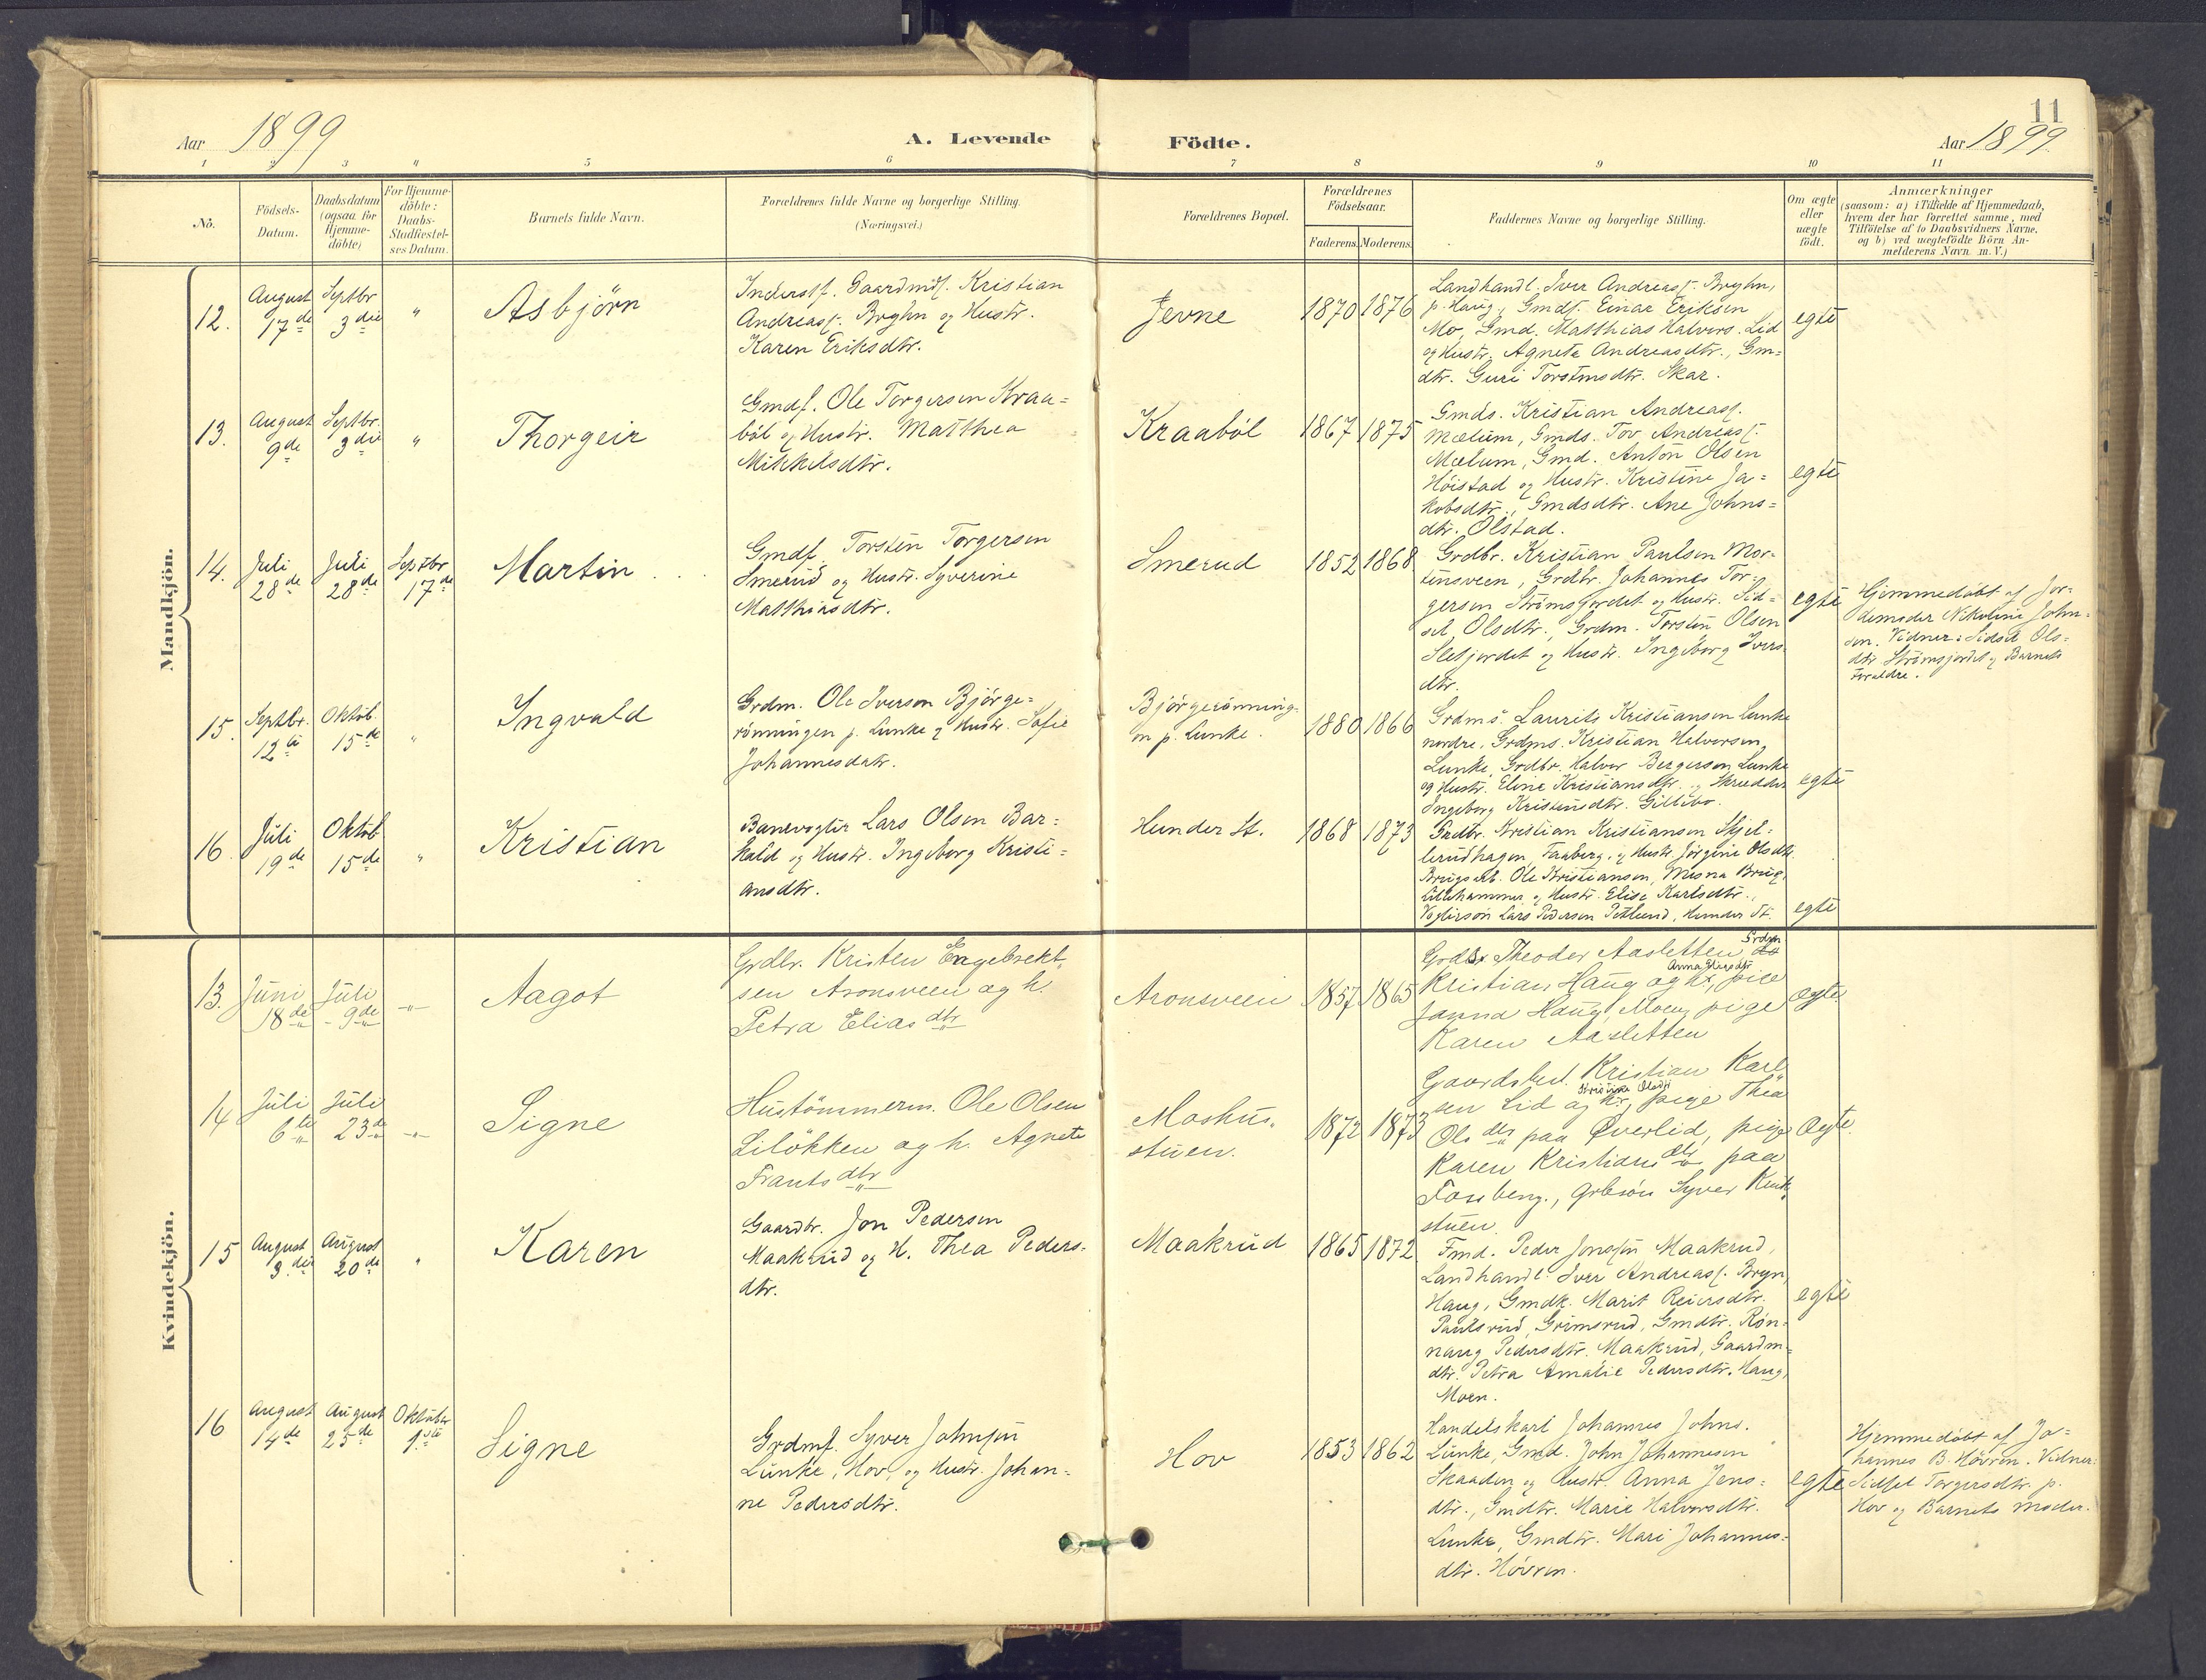 11
Aar 1899
A. Levende Födte.
Aar 1899.
1 2 3 " 5 6 7 8 9 10 11
No.
Födsels-
Datum.
Daabsdatum
(ogsaa for
Hjemme-
döbte)
For Hjemme-
döbte:
Daabs-
Stadfæstel-
ses Datum.
Barnets fulde Navn.
Forældrenes fulde Navne og borgerlige Stilling.
(Næringsvei.)
Forældrenes Bopæl.
Forældrenes
Födselsaar.
Faderens. Moderens.
Faddernes Navne og borgerlige Stilling.
Om ægte
eller
uægte
født.
Anmærkninger
(saasom: a) i Tilfælde af Hjemmedaab,
hvem der har forrettet samme, med
Tilföielse af to Daabsvidners Navne.
og b) ved uægtefödte Börn An-
melderens Navn m. V.)
Mandkjön.
12.
August
17de
Septbr
3die
"
Asbjörn
Inderstf. Gaardmdf. Kristian
Andreasf. Bryhn og Hustr.
Karen Eriksdtr.
Jevne
1870 1876
Landhandl. Iver Andreasf. Bryhn,
p. Haug, Gmdf. Einar Eriksen
Mo, Gmd. Matthias Halvors. Lid
og Hustr. Agnete Andreasdtr., Gm=
dtr. Guri Torstensdtr. Skar.
egte
13.
August
9de
Septbr.
3die
"
Thorgeir
Gmdf. Ole Torgersen Kraa=
böl og Hustr. Matthea
Mikkelsdtr.
Kraaböl
1867 1875
Gmds. Kristian Andreasf.
Mælum, Gmds. Tov Andreasf.
Mælum, Gmd. Anton Olsen
Höistad og Hustr. Kristine Ja=
kobsdtr., Gmdsdtr. Ane Johns=
dtr. Olstad.
egte
14.
Juli
28de
Juli
28de
Septbr
17de
Martin
Gmdf. Torsten Torgersen
Smerud og Hustr. Syverine
Matthiasdtr.
Smerud
1852 1868
Grdbr. Kristian Paulsen Mor=
tensveen, Grdbr. Johannes Tor=
gersen Strömsjordet og Hustr. Sid=
sel Olsdtr., Grdm. Torsten Olsen
Sletjordet og Hustr. Ingeborg Ivers
dtr.
egte
Hjemmedöbt af Jor=
demoder Nikoline John=
sen. Vidner: Sidsel Ols=
dtr Strömsjordet og Barnets
Forældre.
15.
Septbr.
12te
Oktob.
15de
"
Ingvald
Grdm. Ole Iverson Björge=
rönningen p. Lunke og Hustr. Sofie
Johannesdatr.
Björgerönning-
en p. Lunke.
1880 1866
Grdms. Laurits Kristiansen Lunke
nordre, Grdms. Kristian Halvorsen
Lunke, Grdbr. Halvor Bergerson Lunke
og Hustr. Eline Kristiansdtr. og
Ingeborg Kristensdtr. Gillebo.
egte
16.
Juli
19de
Oktob
15de
"
Kristian
Banevogter Lars Olsen Bar=
kald og Hustr. Ingeborg Kristi=
ansdtr.
Hunder St.
1868 1873
Grdbr. Kristian Kristiansen Skjel=
lerudhagen, Faaberg, og Hustr. Jörgine Olsdtr.
Brugsarb. Ole Kristiansen, Mesna Brug,
Lillehammer, og Hustr. Elise Karlsdtr.,
Vogterson Lars Pedersen Petlund, Hunder St.
egte
Kvindekjön.
13.
Juni
18de
Juli
9de
"
Aagot
Grdbr. Kristen Engebrekt-
sen Aronsveen og h.
Petra Eliasdtr
Aronsveen
1857 1865
Grdbr. Theodor Aasletten Grdm
Kristian Haug og hr., pige
Janna Haug, Moen, pige
Karen Aasletten
Ægte
14
Juli
6te
Juli
23de
"
Signe
Hustömmerm. Ole Olsen
Liløkken og h. Agnete
Frantsdtr
Moshus-
stuen.
1872 1873
Gaardsbest. Kristian Karl
sen Lid og hr., Kristine Olsdtr pige Thea
Olsdtr paa Øverlid, pige
Karen Kristiansdtr paa
Fossberg., grbsön Syver Kirk
stuen
Ægte.
15
August
3die
August
20de
"
Karen
Gaardbr. Jon Pedersen
Maakrud og H. Thea Peders=
dtr.
Maakrud
1865 1872
Fmd. Peder Jonsson Maakrud,
Landhandl. Iver Andreasf. Bryn,
Haug, Gmdk. Marit Reiersdtr.
Paulsrud, Grimsrud, Gmdtr. Rön=
naug Pedersdtr. Maakrud, Gaardm=
dtr. Petra Amalie Pedersdtr. Haug,
Moen.
egte
16
August
14de
August
25de
Oktober
1ste
Signe
Grdmf. Syver Johnsen
Lunke, Hov, og Hustr. Johan=
ne Pedersdtr.
Hov
1853 1862
Handelskarl Johannes Johns.
Lunke, Gmd. John Johannesen
Skaaden og Hustr. Anna Jens=
dtr., Gmdtr. Marie Halvorsdtr.
Lunke, Gmdtr. Mari Johannes=
dtr. Hövren.
egte
Hjemmedöbt af Jo=
hannes B. Hövren. Vidner:
Sidsel Torgersdtr. p.
Hov og Barnets Moder.